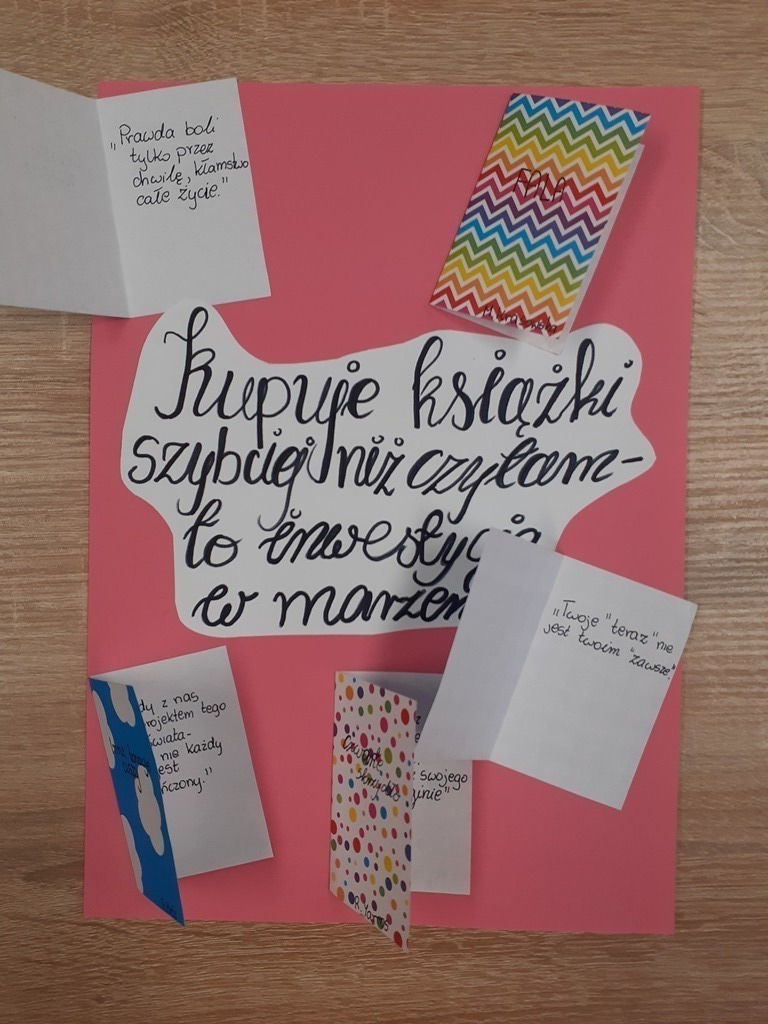 „Prawda boli
tylko przez
chwilę, kłamstwo
całe życie."
FALA
Kupuje książki
szybciej niż czytam-
to inwestycja
w marzen
„Twoje "teraz" nie
jest twoim "zawsze"."
dy z nas
rojektem tego
świata-
nie każdy
est
ńczony."
Czwarte
skrzydło
swojego
ginie"
R. Yarros